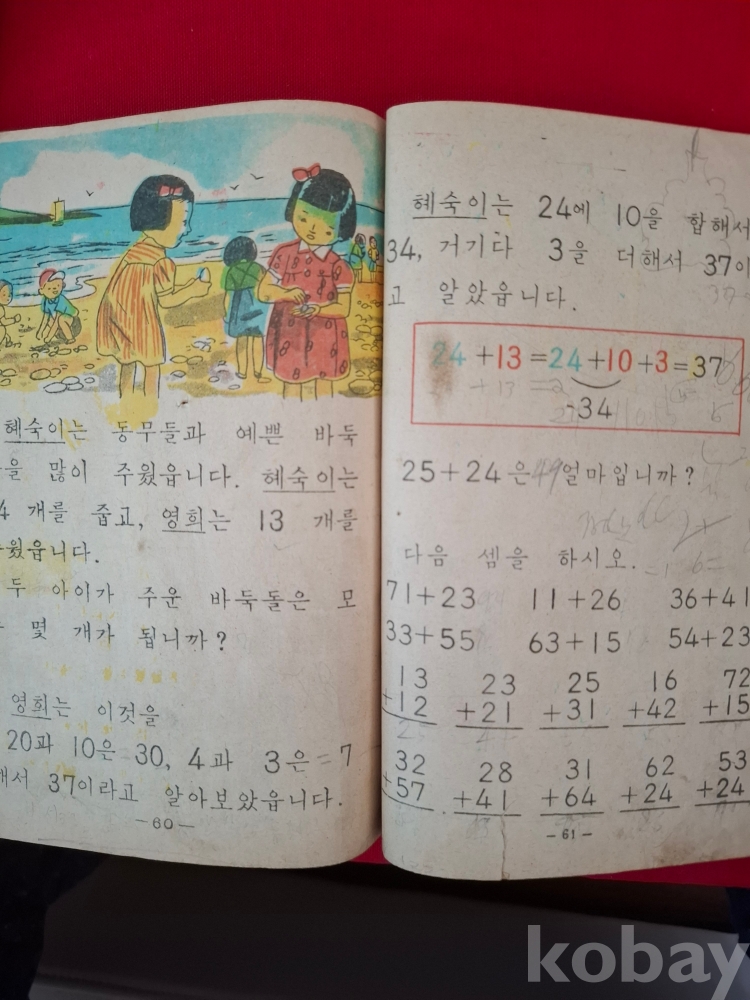 혜숙이는 동무들과 예쁜 바둑
을 많이 주웠읍니다. 혜숙이는
4 개를 줍고, 영희는 13 개를
웠읍니다.
두 아이가 주운 바둑돌은 모
몇 개가 됩니까?
영희는 이것을
20과 10은 30, 4과 3은 = 7
해서 37이라고 알아보았읍니다.
— 60 —
혜숙이는 24에 10을 합해서
34, 거기다 3을 더해서 37이
고 알았읍니다.
24 + 13 = 24 + 10 + 3 = 37
34
25 + 24 은 49 얼마입니까?
다음 셈을 하시오.
71 + 23 11 + 26 36 + 41
33 + 55 63 + 15 54 + 23
13 23 25 16 72
+12 +21 +31 +42 +15
32 28 31 62 53
+57 +41 +64 +24 +24
— 61 —
kobay